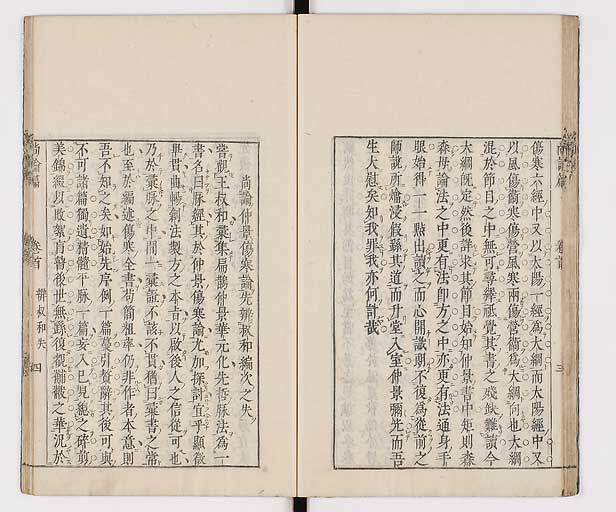 傷寒六經中又以太陽一經爲大綱而太陽經中又
以風傷衛寒傷營風寒兩傷營衛爲大綱向也大綱
混於節目之中無可尋繹祗覺其書之殘缺難讀今
大綱旣定然後詳求其節目始知仲景書中矩則森
森毋論法之中更有法卽方之中亦更有法通身手
眼始得一一點出讀之而心開識朗不復爲從前之
師說所燴浸假繇其道而升堂入室仲景彌光而吾
生大慰矣知我罪我亦何計哉
尚論仲景傷寒論先辨叔和編次之失
嘗觀王叔和彙集扁鵲仲景華元化先哲脉法爲一
書名曰脉經其於仲景傷寒論尤加探討宜乎顯微
畢貫曲暢創法製方之本旨以啟後人之信從可也
乃於彙脉之中間一彙證不該不貫猶曰彙書之常
也至於編述傷寒全書苟簡粗率仍非作者本意則
吾不知之矣如始先序例一篇蔓引贅辭其後可與
不可諸篇獨遺精髓平脉一篇妄入已見總之碎剪
美錦綴以敗絮盲瞽後世無繇復覩黼黻之華況於
尚論編
卷首
辨叔和失
四